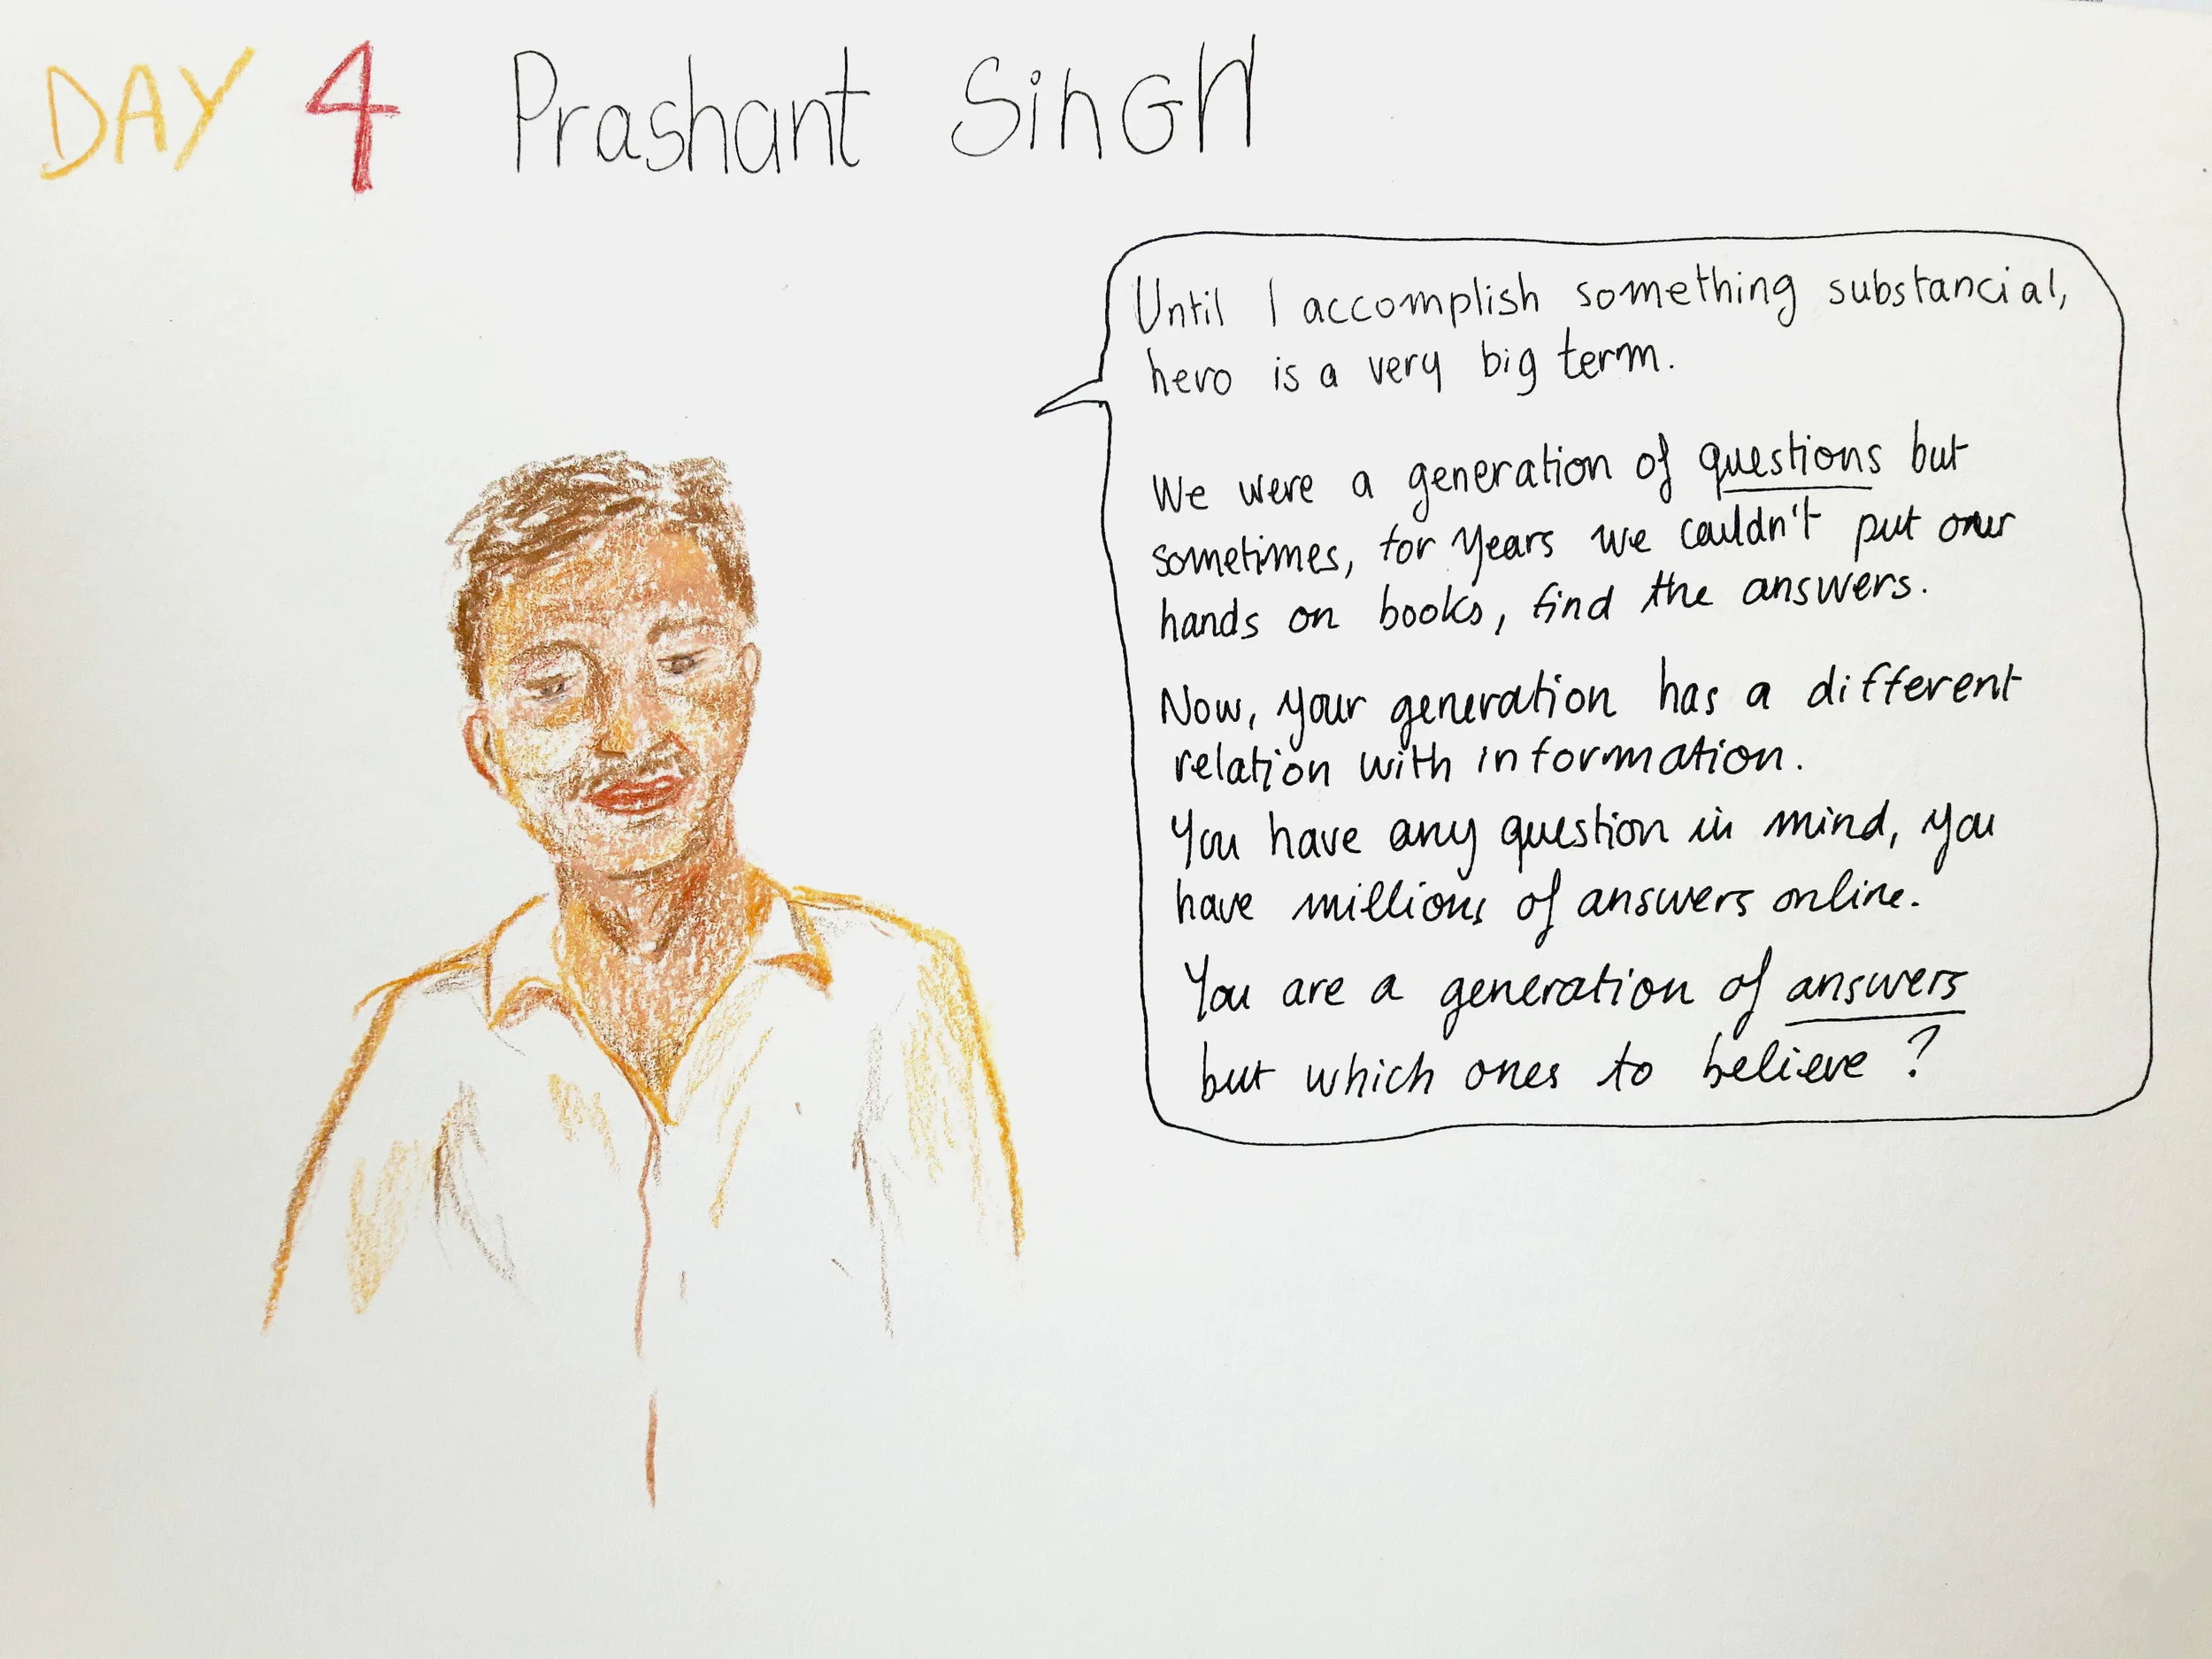 DAY 4 Prashant SinGH
Until I accomplish something substancial,
hero is a very big term.
We were a generation of questions but
sometimes, for years we couldn't put our
hands on books, find the answers.
Now, your generation has a different
relation with information.
You have any question in mind, you
have millions of answers online.
You are a generation of answers
but which ones to believe ?